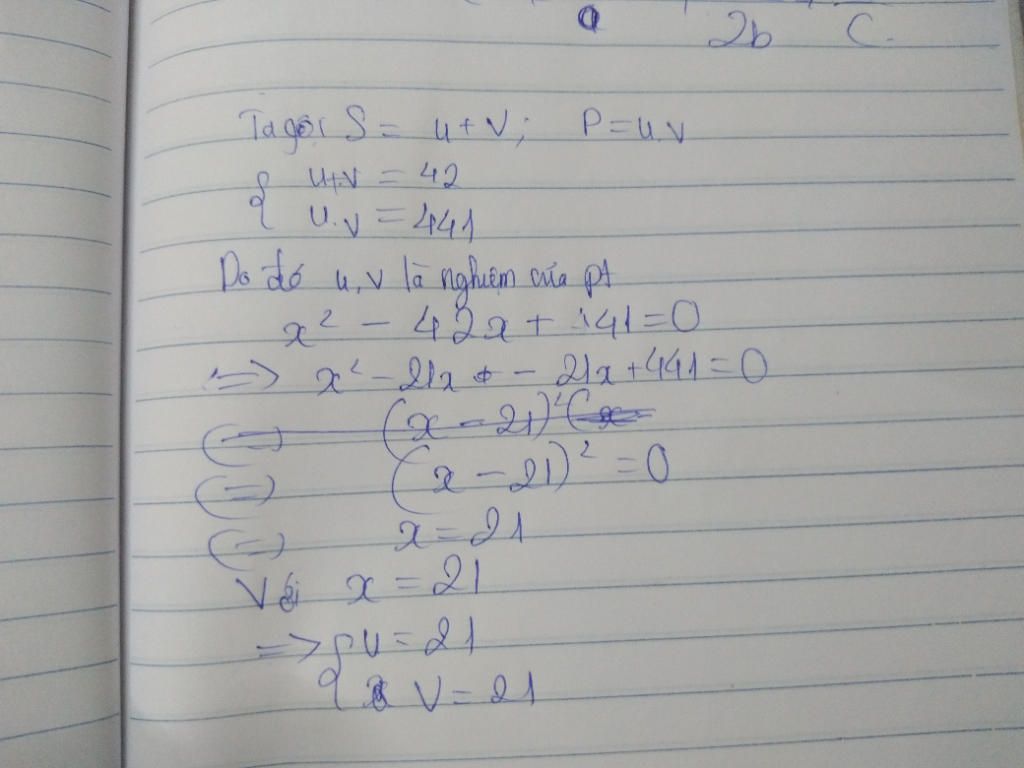 2b C.
Ta gọi S = u + v; P = u.v
{ u+v = 42
u.v = 441
Do đó u, v là nghiệm của pt
x² - 42x + 441 = 0
=> x² - 21x - 21x + 441 = 0
(=) (x - 21)²
(=) (x - 21)² = 0
(=) x = 21
Với x = 21
=> { u = 21
v = 21